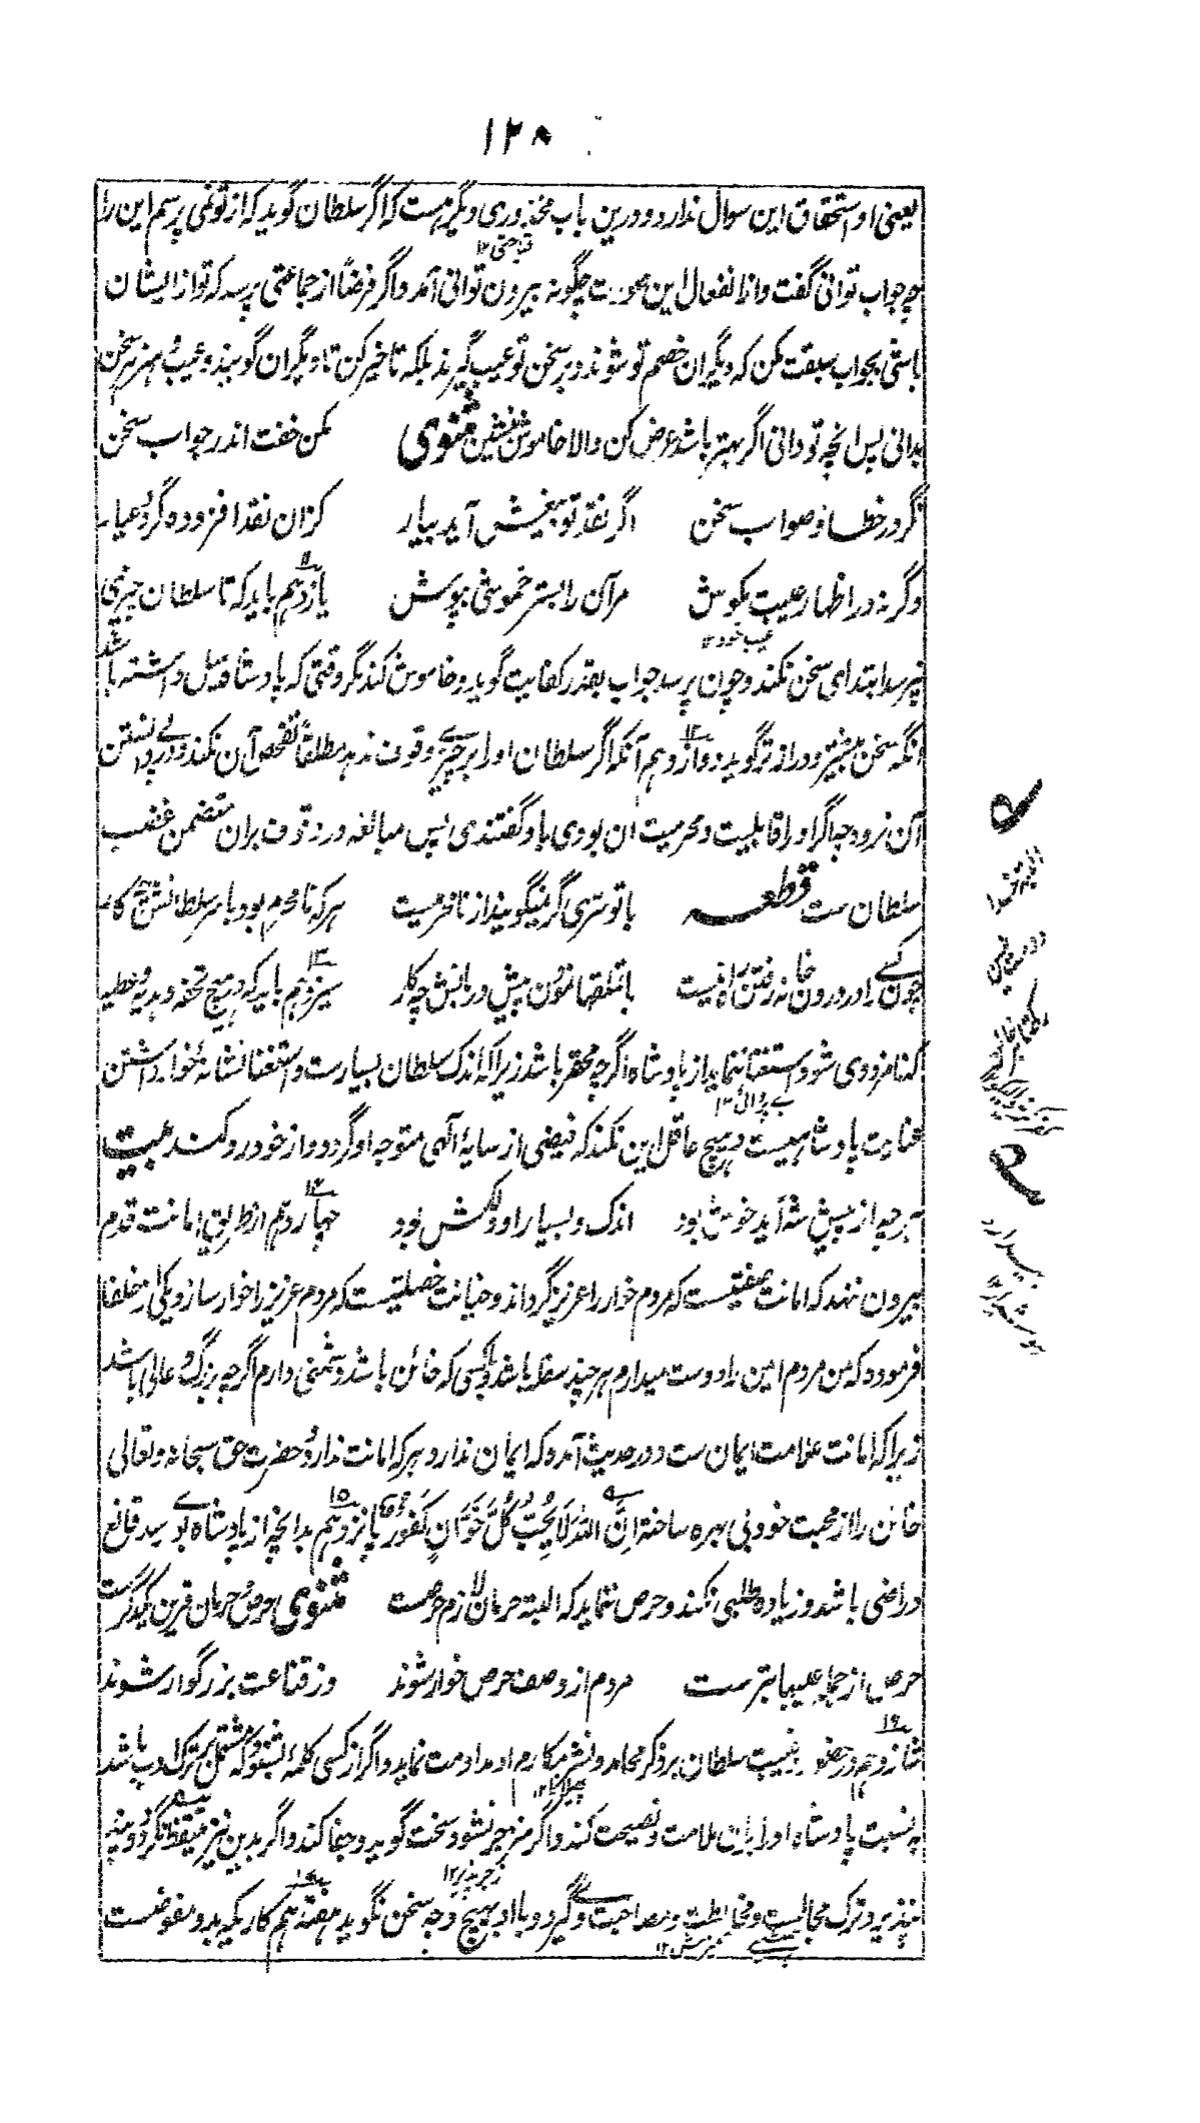 ۱۲۸
یعنی او استحقاق این سوال ندارد و درین باب محذوری دیگر هست که اگر سلطان گوید که از تو نمی پرسم این را
قباحتی ۱۲
چه جواب توانی گفت و از انفعال این صورت چگونه بیرون توانی آمد و اگر فرضاً از جماعتی پرسد که تو از ایشان
باشی بجواب سبقت مکن که دیگران خصم تو شوند و بر سخن تو عیب گیرند بلکه تاخیر کن تا دیگران گویند و عیب و هنر هر سخن
بدانی پس آنچه تو دانی اگر بهتر باشد عرض کن والا خاموش بنشین مثنوی مکن خفت اندر جواب سخن
نگر در خطا و صواب سخن اگر نقد تو بیغش آید بیار کزان نقد افزوده گردد عیار
وگرنه در اظهار عیبت مکوش مرآن را بستر خموشی بپوش یازدهم باید که تا سلطان چیزی
عیب خود ۱۲
نپرسد ابتدای سخن نکند و چون پرسد جواب بقدر کفایت گوید و خاموش کند مگر وقتی که پادشاه میل داشته باشد
آنگه سخن بیشتر و درازتر گوید دوازدهم آنکه اگر سلطان او را بر چیزے وقوف ندهد مطلقاً تفحص آن نکند و در پے دانستن
آن نرود چه اگر او را قابلیت و محرمیت آن بودی با او گفتندی پس مبالغه در وقوف بران متضمن غضب
سلطان ست قطعه با تو سری گر نمیگویند از نامحرمیست هر که نامحرم بود با سر سلطانش چه کار
چون کسے را در درون خانه رفتن راه نیست با تلقها نمودن پیش دربانش چه کار سیزدهم باید که در هیچ تحفه و هدیه و عطیه
که نامزد وی شود استغنا ننماید از پادشاه اگرچه محقر باشد زیرا که اندک سلطان بسیارست و استغنا نشانۀ خوار داشتن
بے پروائی ۱۲
عنایت پادشاهیست و هیچ عاقل این نکند که فیضی از سایۀ الهی متوجه او گردد و از خود رد کند بیت
هر چه از پیش شه آید خوش بود اندک و بسیار او دلکش بود چهاردهم از طریق امانت قدم
بیرون ننهد که امانت صفتیست که مردم خوار را عزیز گرداند و خیانت خصلتیست که مردم عزیز را خوار سازد و یکی از خلفا
فرموده که من مردم امین را دوست میدارم هر چند سفله باشد و با کسی که خائن باشد دشمنی دارم اگرچه بزرگ و عالی باشد
زیرا که امانت علامت ایمان ست و در حدیث آمده که ایمان ندارد هر که امانت ندارد و حضرت حق سبحانه و تعالی
خائن را از محبت خود بی بهره ساخته اِنَّ اللّٰهَ لَا یُحِبُّ کُلَّ خَوَّانٍ کَفُوْرٍ پانزدهم بدانچه از پادشاه بوے رسد قانع
و راضی باشد و زیاده طلبی نکند و حرص ننماید که البته حرمان لازم حرص ست مثنوی حرص و حرمان قرین یکدگرست
حرص از جمله عیبها بترست مردم از وصف حرص خوار شوند وز قناعت بزرگوار شوند
شانزدهم در حضور و غیبت سلطان بر ذکر محامد و نشر مکارم او مداومت نماید و اگر از کسی کلمۀ بشنود که مشتمل بر ترک ادب باشد
به نسبت پادشاه او را بران ملامت و نصیحت کند و اگر منزجر نشود سخت گوید و جفا کند و اگر بدین نیز متیقظ نگردد و پند
نپذیرد ترک مجالست و مخالطت و مصاحبت وے گیرد و با او بهیچ وجه سخن نگوید هفدهم کاریکه بدو مفوض ست